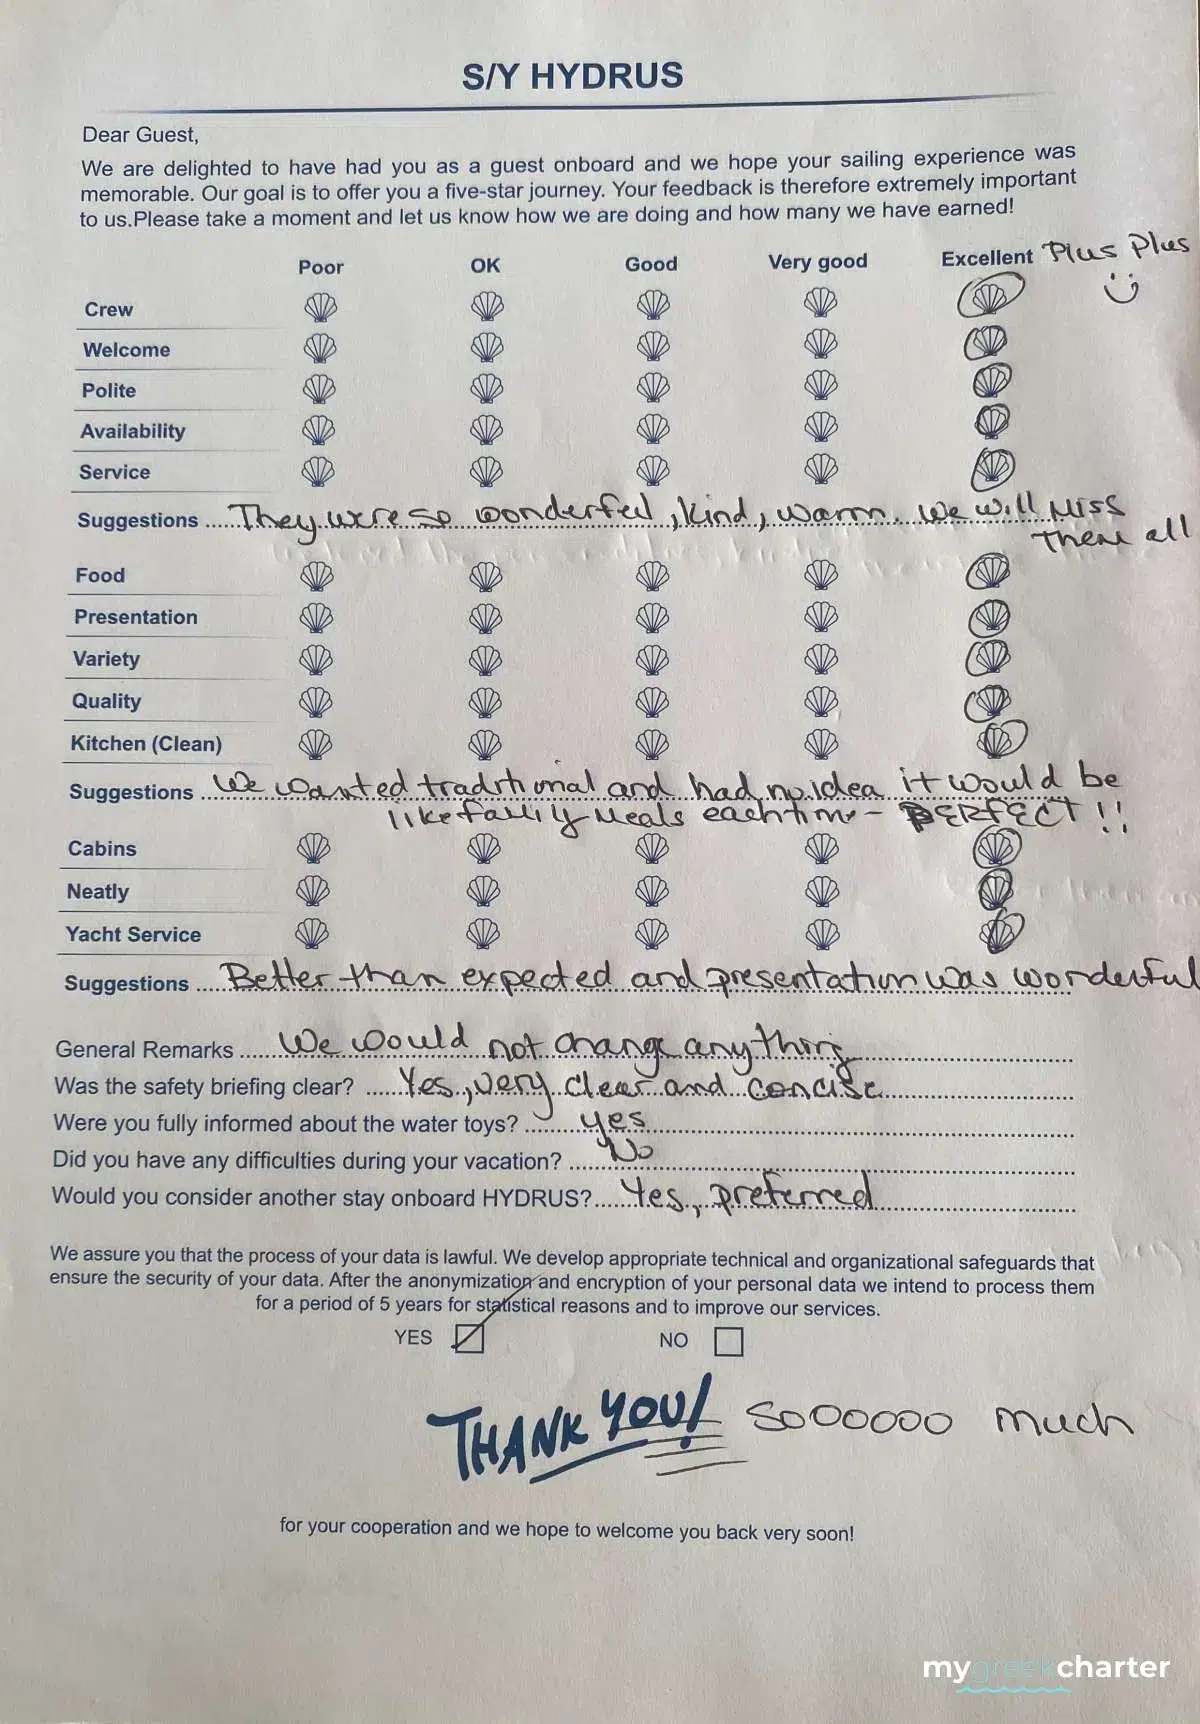 S/Y HYDRUS
Dear Guest,
We are delighted to have had you as a guest onboard and we hope your sailing experience was
memorable. Our goal is to offer you a five-star journey. Your feedback is therefore extremely important
to us.Please take a moment and let us know how we are doing and how many we have earned!
Poor OK Good Very good Excellent Plus Plus
Crew
Welcome
Polite
Availability
Service
Suggestions They were so wonderful, kind, warm. We will Miss
them all
Food
Presentation
Variety
Quality
Kitchen (Clean)
Suggestions We wanted traditional and had no idea it would be
like family meals each time - PERFECT!!
Cabins
Neatly
Yacht Service
Suggestions Better than expected and presentation was wonderful
General Remarks We would not change anything
Was the safety briefing clear? Yes, very clear and concise
Were you fully informed about the water toys? yes
Did you have any difficulties during your vacation? No
Would you consider another stay onboard HYDRUS? Yes, preferred
We assure you that the process of your data is lawful. We develop appropriate technical and organizational safeguards that
ensure the security of your data. After the anonymization and encryption of your personal data we intend to process them
for a period of 5 years for statistical reasons and to improve our services.
YES NO
THANK YOU! SOOOOOO much
for your cooperation and we hope to welcome you back very soon!
mygreekcharter